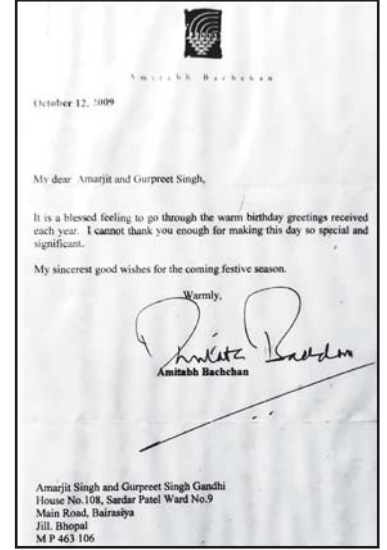 Amitabh Bachchan
October 12, 2009
My dear Amarjit and Gurpreet Singh,
It is a blessed feeling to go through the warm birthday greetings received
each year. I cannot thank you enough for making this day so special and
significant.
My sincerest good wishes for the coming festive season.
Warmly,
Amitabh Bachchan
Amarjit Singh and Gurpreet Singh Gandhi
House No.108, Sardar Patel Ward No.9
Main Road, Bairasiya
Jill. Bhopal
M P 463 106